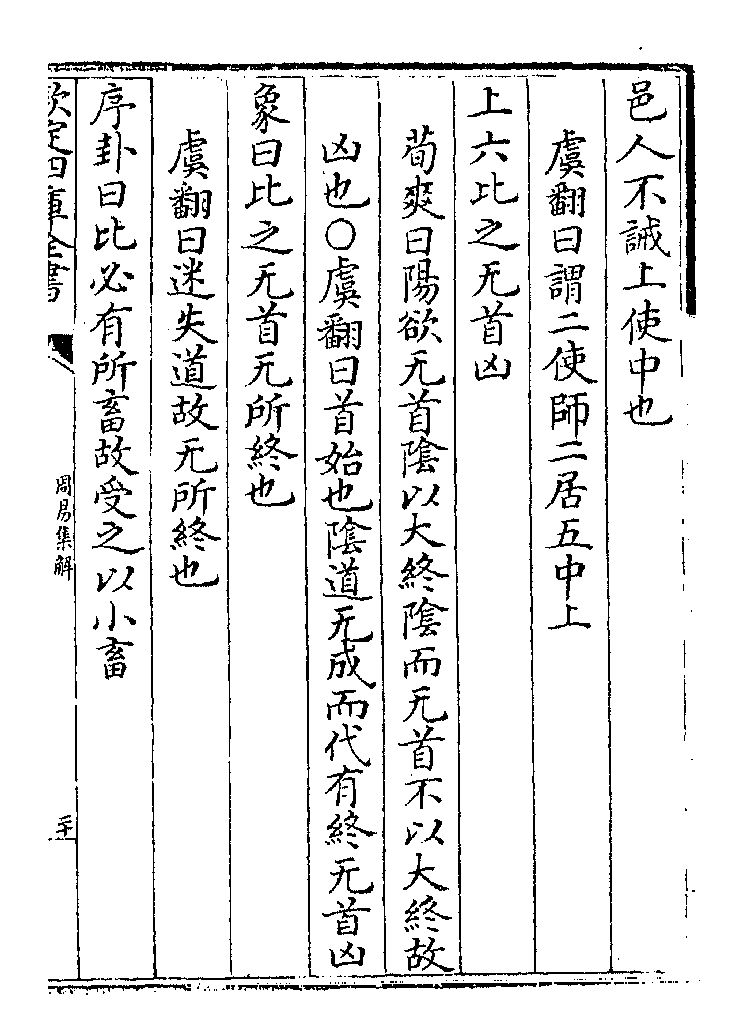 邑人不誡上使中也
虞翻曰謂二使師二居五中上
上六比之无首凶
荀爽曰陽欲无首陰以大終陰而无首不以大終故
凶也○虞翻曰首始也陰道无成而代有終无首凶
象曰比之无首无所終也
虞翻曰迷失道故无所終也
序卦曰比必有所畜故受之以小畜
欽定四庫全書
周易集解
二十